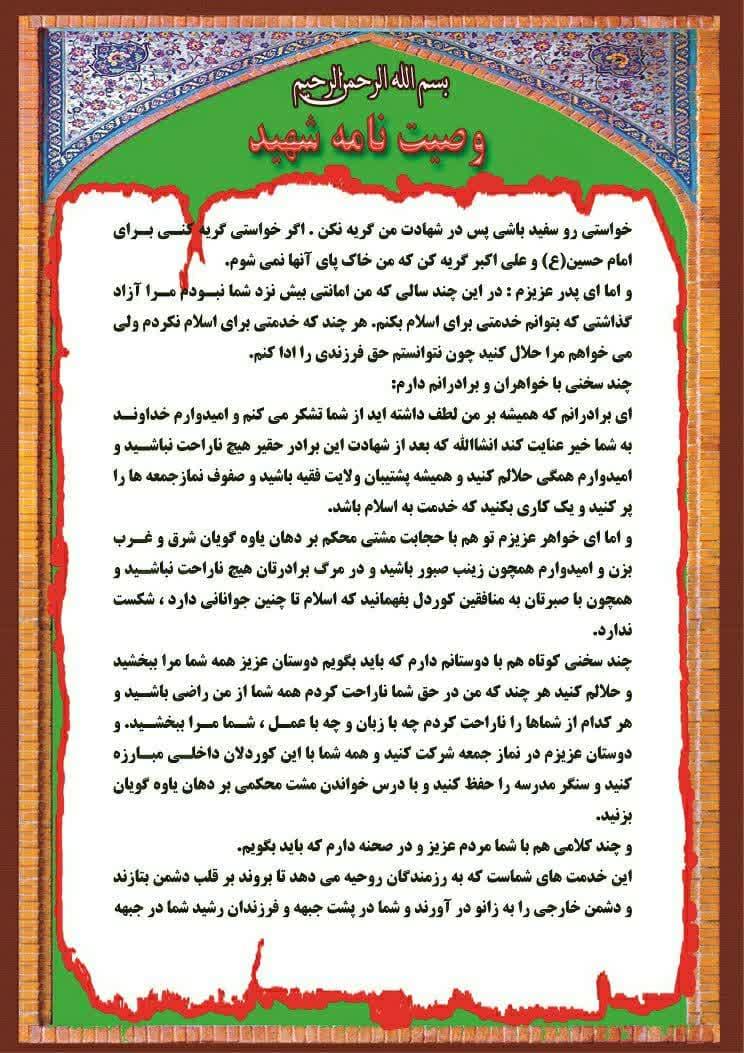 بسم الله الرحمن الرحیم
وصیت نامه شهید
خواستی رو سفید باشی پس در شهادت من گریه نکن . اگر خواستی گریه کنــی بــرای
امام حسین(ع) و علی اکبر گریه کن که من خاک پای آنها نمی شوم.
و اما ای پدر عزیزم : در این چند سالی که من امانتی بیش نزد شما نبـودم مـرا آزاد
گذاشتی که بتوانم خدمتی برای اسلام بکنم. هر چند که خدمتی برای اسلام نکردم ولی
می خواهم مرا حلال کنید چون نتوانستم حق فرزندی را ادا کنم.
چند سخنی با خواهران و برادرانم دارم:
ای برادرانم که همیشه بر من لطف داشته اید از شما تشکر می کنم و امیدوارم خداونـد
به شما خیر عنایت کند انشاالله که بعد از شهادت این برادر حقیر هیچ ناراحت نباشـید و
امیدوارم همگی حلالم کنید و همیشه پشتیبان ولایت فقیه باشید و صفوف نمازجمعه ها را
پر کنید و یک کاری بکنید که خدمت به اسلام باشد.
و اما ای خواهر عزیزم تو هم با حجابت مشتی محکم بر دهان یاوه گویان شرق و غــرب
بزن و امیدوارم همچون زینب صبور باشید و در مرگ برادرتان هیچ ناراحت نباشـید و
همچون با صبرتان به منافقین کوردل بفهمانید که اسلام تا چنین جوانانی دارد ، شکست
ندارد.
چند سخنی کوتاه هم با دوستانم دارم که باید بگویم دوستان عزیز همه شما مرا ببخشید
و حلالم کنید هر چند که من در حق شما ناراحت کردم همه شما از من راضی باشـید و
هر کدام از شماها را ناراحت کردم چه با زبان و چه با عمـل ، شـما مـرا ببخشـید. و
دوستان عزیزم در نماز جمعه شرکت کنید و همه شما با این کوردلان داخلـی مبـارزه
کنید و سنگر مدرسه را حفظ کنید و با درس خواندن مشت محکمی بر دهان یاوه گویان
بزنید.
و چند کلامی هم با شما مردم عزیز و در صحنه دارم که باید بگویم.
این خدمت های شماست که به رزمندگان روحیه می دهد تا بروند بر قلب دشمن بتازند
و دشمن خارجی را به زانو در آورند و شما در پشت جبهه و فرزندان رشید شما در جبهه